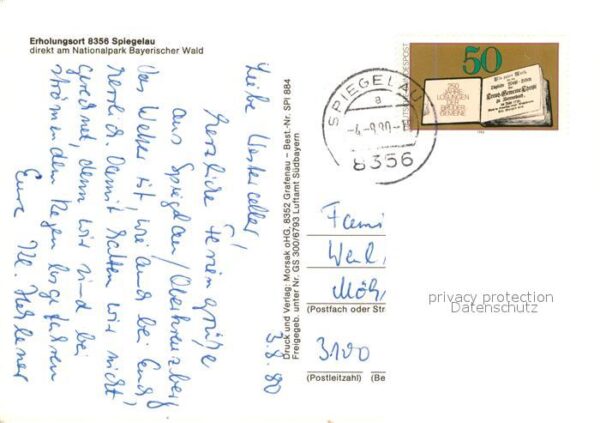 Erholungsort 8356 Spiegelau
direkt am Nationalpark Bayerischer Wald
3.8.80
Liebe
Herzliche Feriengrüße
aus Spiegelau/Oberkreuzberg.
Das Wetter ist, wie auch bei Euch,
herrlich. Damit hatten wir nicht
gerechnet, denn wir sind bei
strömenden Regen losgefahren
Eure
Druck und Verlag: Morsak oHG, 8352 Grafenau – Best.-Nr. SPI 884
Freigegeben unter Nr. GS 300/6793 Luftamt Südbayern
SPIEGELAU
a
8356
50
250
JAHRE
LOSUNGEN
DER
BRÜDER
GEMEINE
Fami
(Postfach oder Str
3100
(Postleitzahl) (Be
privacy protection
Datenschutz